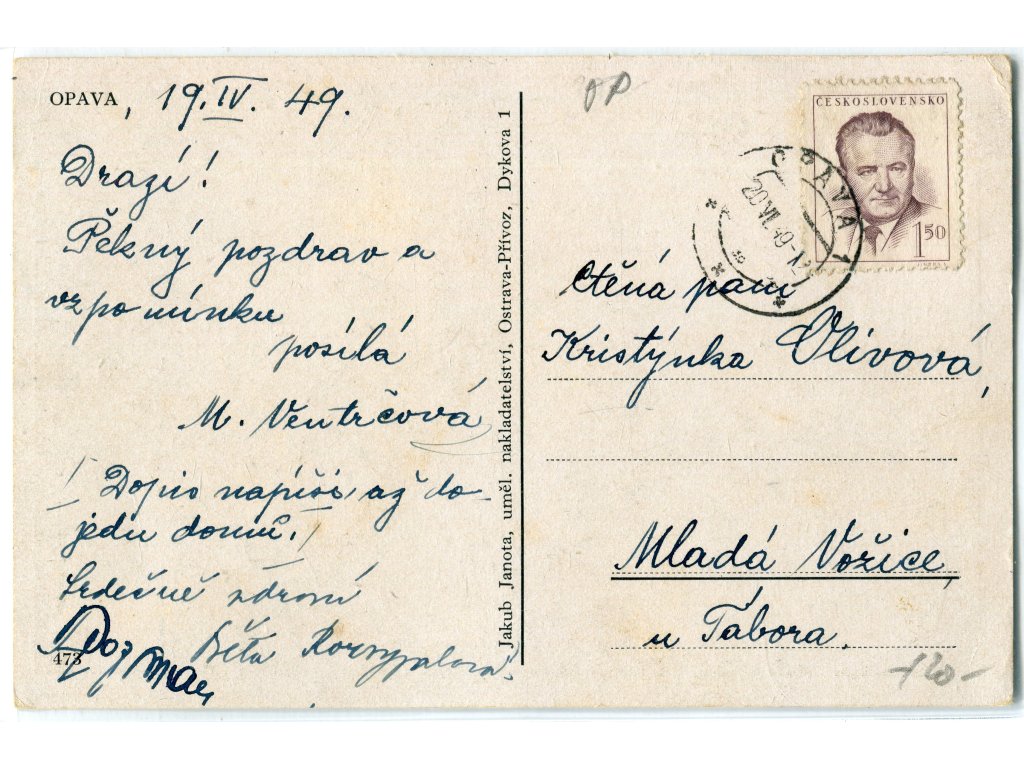 OPAVA, 19.IV. 49.
Drazí!
Pěkný pozdrav a
vzpomínku
posílá
M. Ventrčová
/ Dopis napíši, až do-
jedu domů. /
Srdečně zdraví
Běta
473
Jakub Janota, uměl. nakladatelství, Ostrava-Přívoz, Dykova 1
VP
ČESKOSLOVENSKO
1.50
OPAVA 1
20.VI.49
Ctěná paní
Kristýnka Olivová,
Mladá Vožice,
u Tábora.
120-